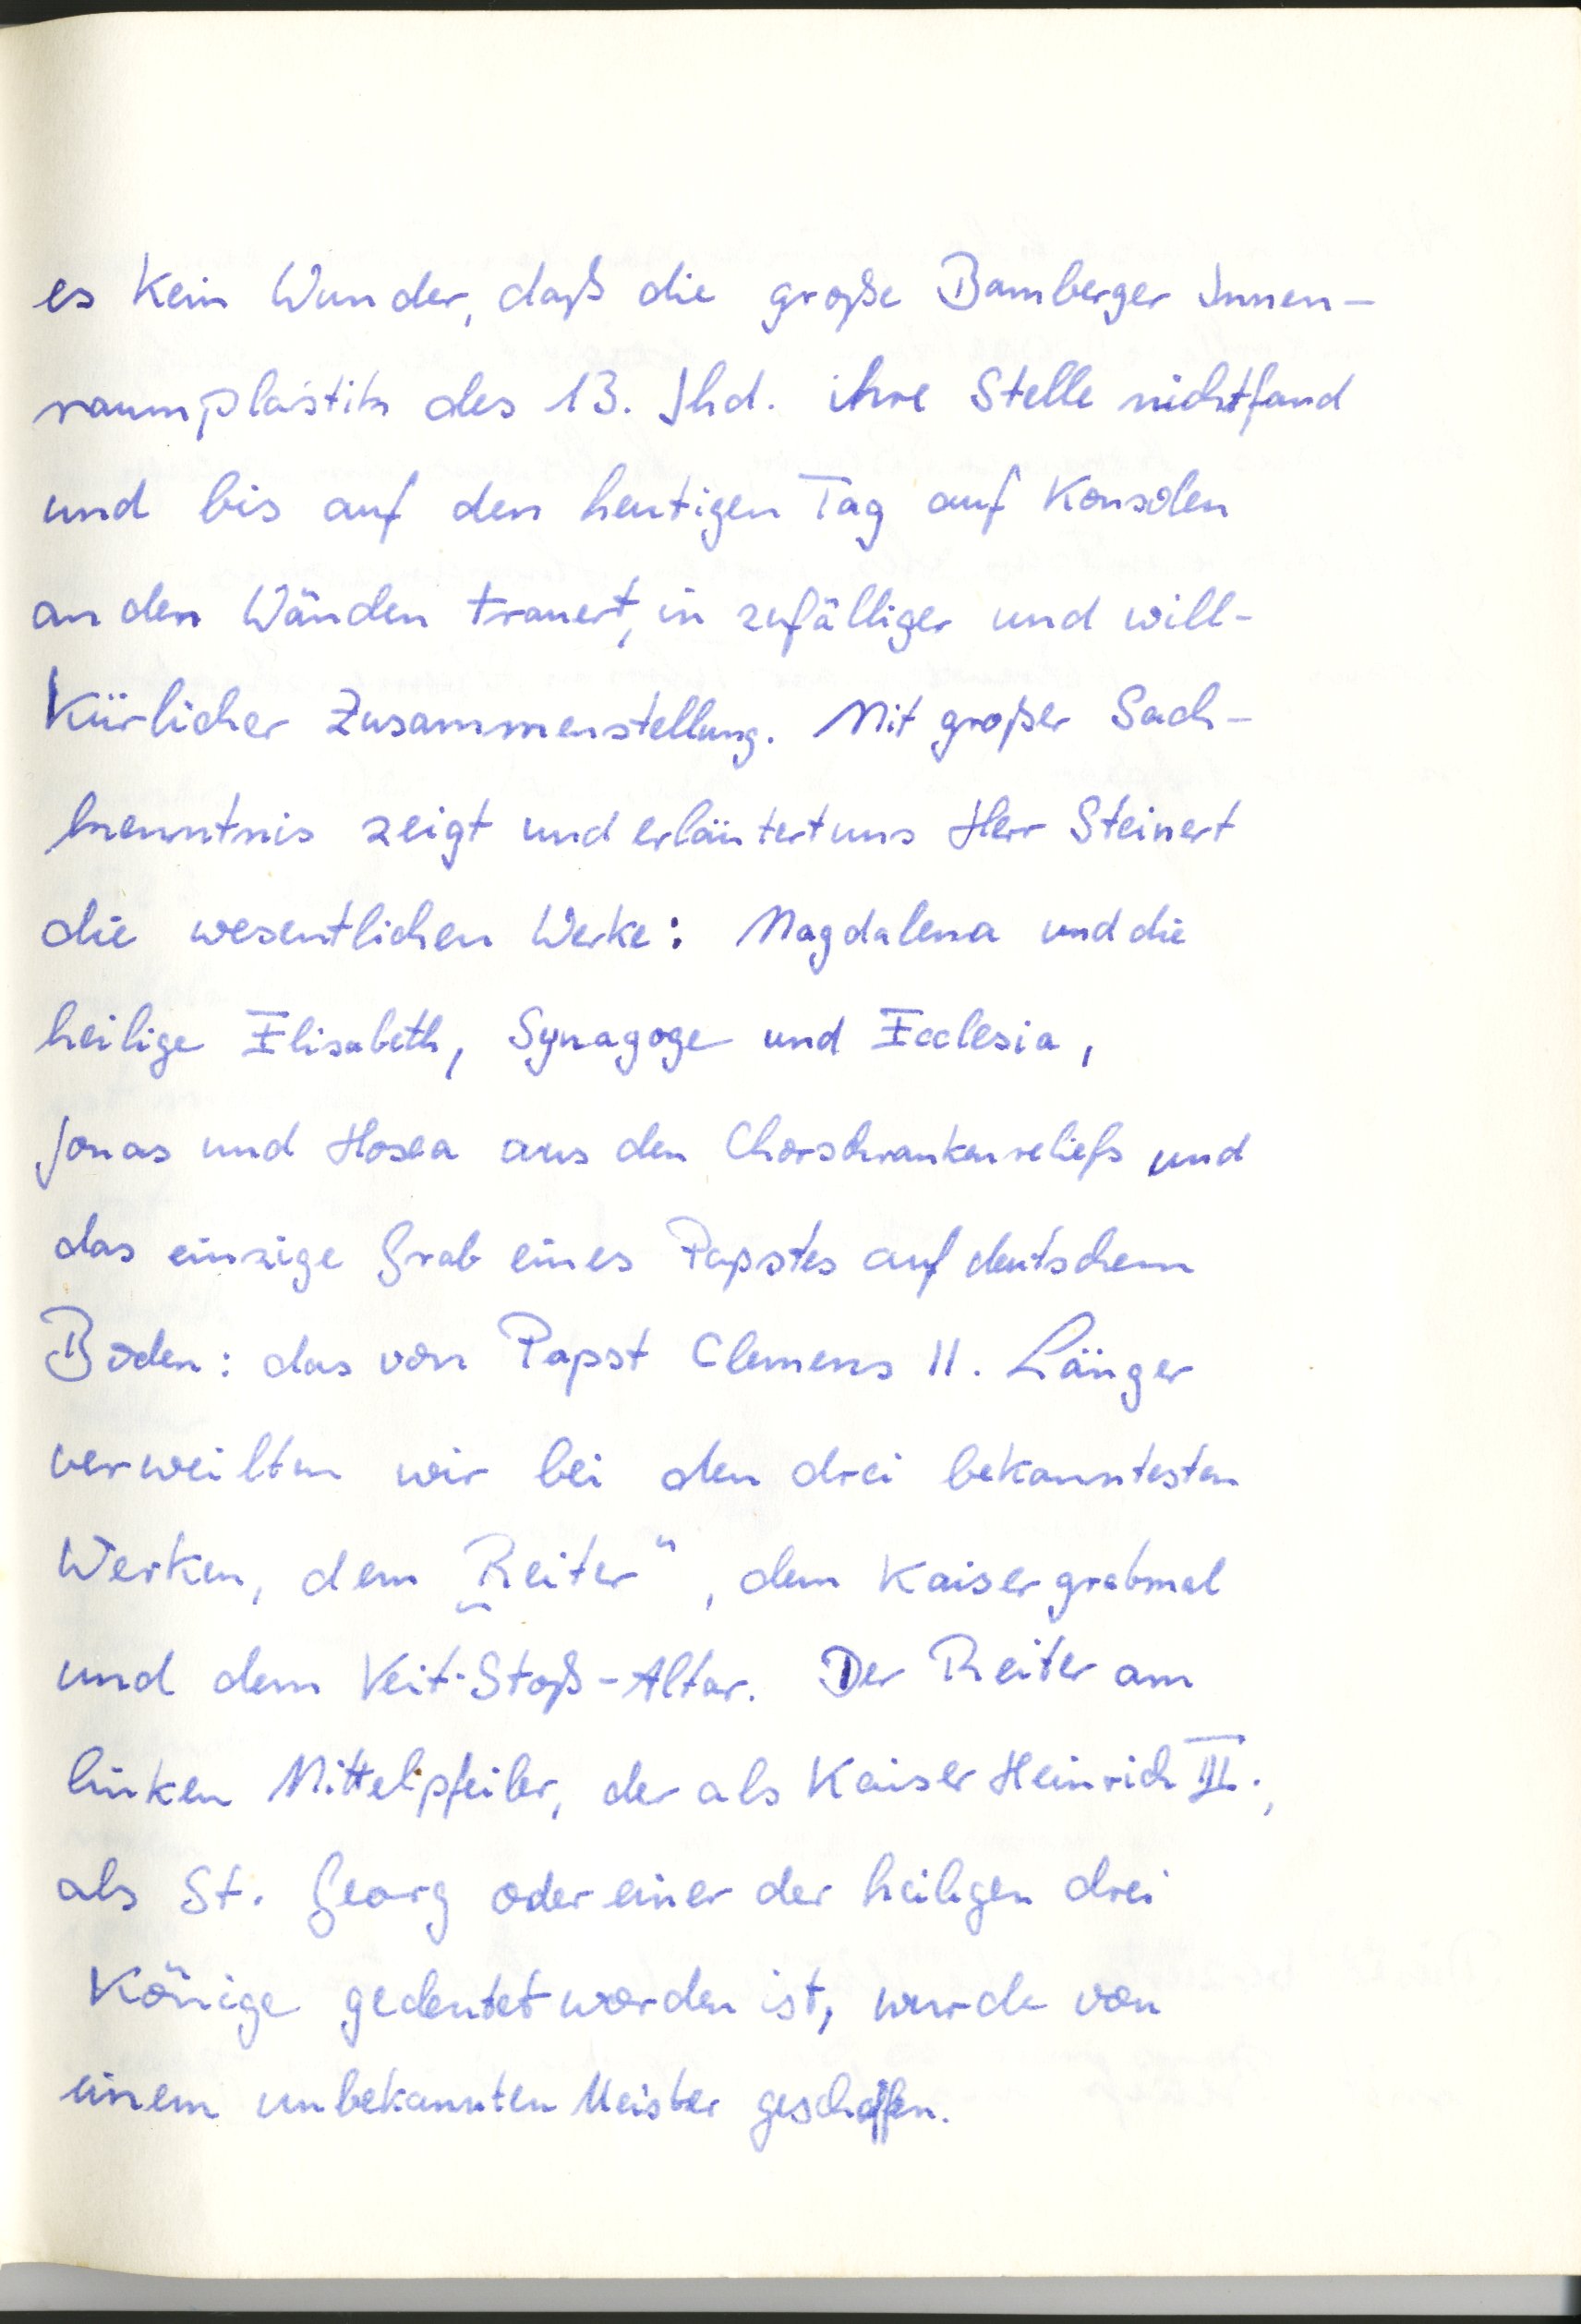 es kein Wunder, daß die große Bamberger Innen-
raumplastik des 13. Jhd. ihre Stelle nicht fand
und bis auf den heutigen Tag auf Konsolen
an den Wänden trauert, in zufälliger und will-
kürlicher Zusammenstellung. Mit großer Sach-
kenntnis zeigt und erläutert uns Herr Steinert
die wesentlichen Werke: Magdalena und die
heilige Elisabeth, Synagoge und Ecclesia,
Jonas und Hosea aus den Chorschrankenreliefs und
das einzige Grab eines Papstes auf deutschem
Boden: das von Papst Clemens II. Länger
verweilten wir bei den drei bekanntesten
Werken, dem „Reiter", dem Kaisergrabmal
und dem Veit-Stoß-Altar. Der Reiter am
linken Mittelpfeiler, der als Kaiser Heinrich III.,
als St. Georg oder einer der heiligen drei
Könige gedeutet worden ist, wurde von
einem unbekannten Meister geschaffen.